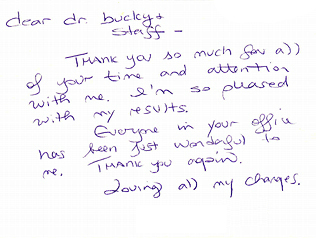 dear dr. bucky +
staff -
Thank you so much for all
of your time and attention
with me. I'm so pleased
with my results.
Everyone in your office
has been just wonderful to
me. Thank you again.
Loving all my changes.